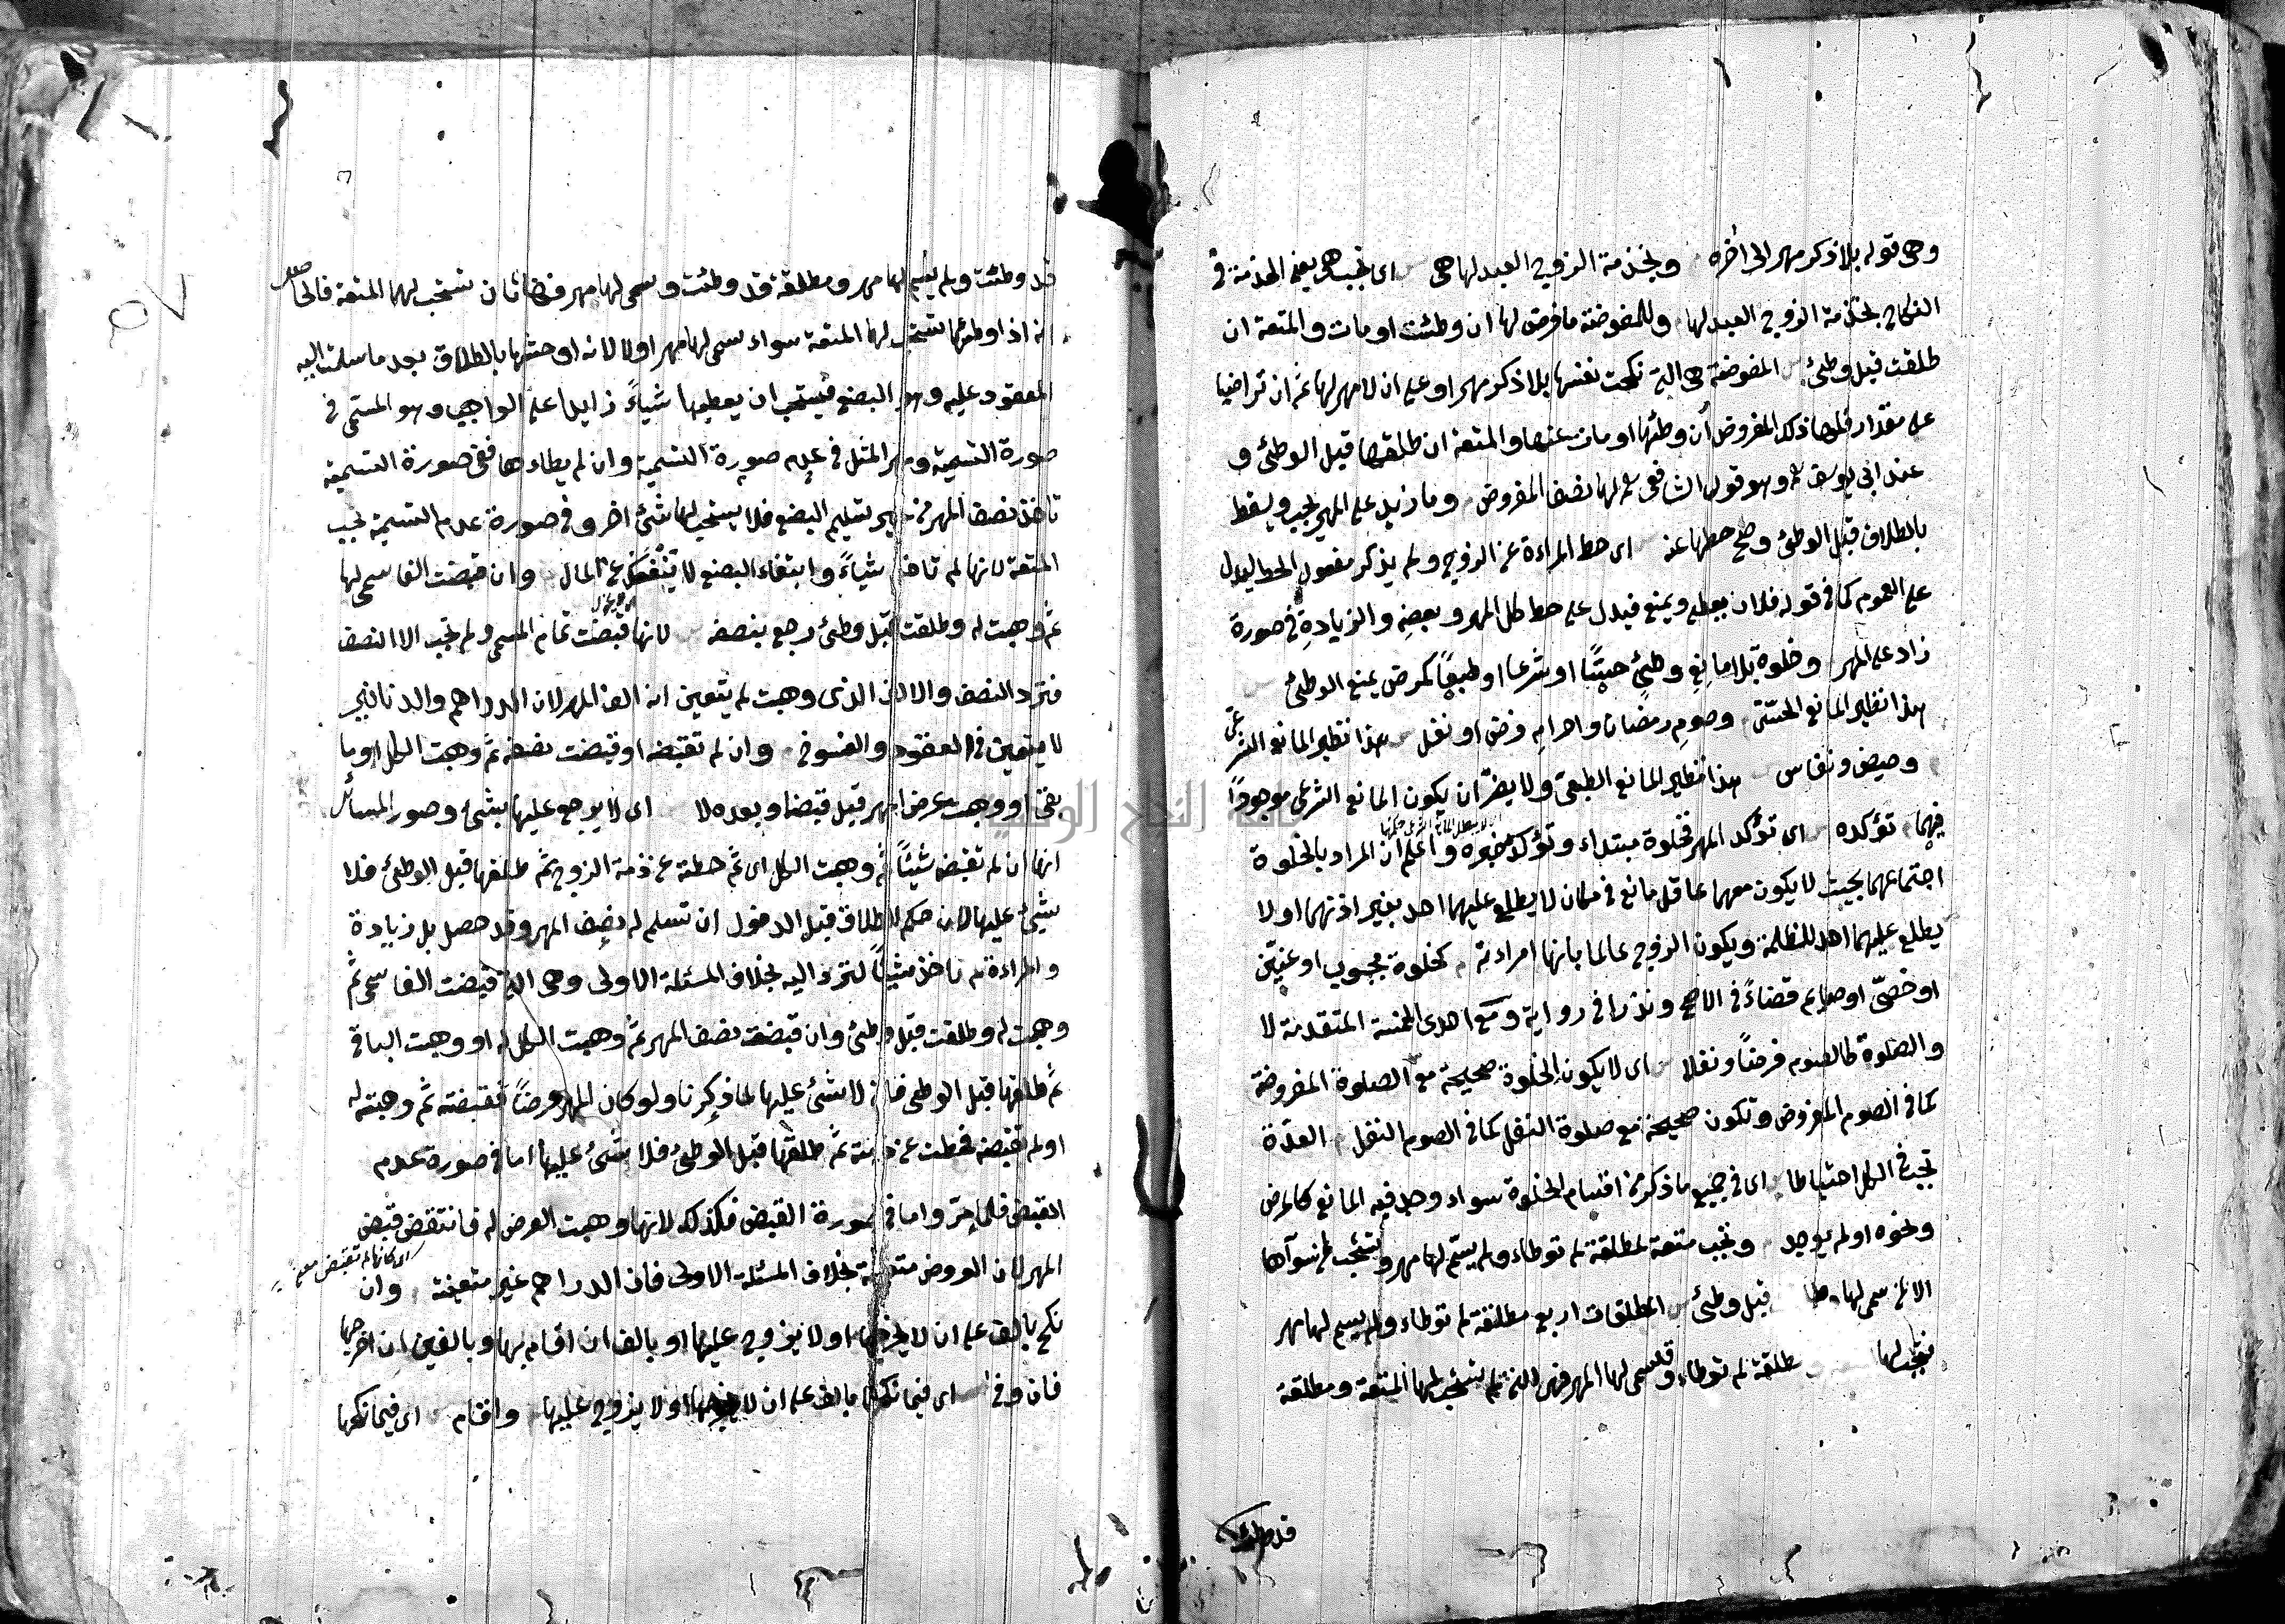 وهى قوله بلا ذكر مهر الى اخره وبخذمة الزوج العبد لها هى اى تجب هى يعنى الخذمة فى
النكاح بخذمة الزوج العبد لها وللمفوضة ما فرض لها ان وطئت او مات والمتعة ان
طلقت قبل وطئ المفوضة هى التى نكحت نفسها بلا ذكر مهر او على ان لا مهر لها ثم ان تراضيا
على مقدار فلها ذلك المفروض ان وطئها او مات عنها والمتعة ان طلقها قبل الوطئ و
عند ابى يوسف وهو قول الشافعى لها نصف المفروض وما زيد على المهر يجب ويسقط
بالطلاق قبل الوطئ وصح حطها عنه اى حط المراءة عن الزوج ولم يذكر مفعول الحط ليدل
على العموم كما فى قوله فلان يعطى ويمنع فيدل على حط كل المهر وبعضه والزيادة فى صورة
زاد على المهر وخلوة بلا مانع وطئ حسيا او شرعا او طبعا كمرض يمنع الوطئ
هذا نظير المانع الحسى وصوم رمضان واحرام فرض او نفل هذا نظير المانع الشرعى
وحيض ونفاس هذا نظير المانع الطبعى ولا يضر ان يكون المانع الشرعى موجودا
فيهما تؤكده اى تؤكد المهر فخلوة مبتداء وتؤكد خبره واعلم ان المراد بالخلوة
اجتماعهما بحيث لا يكون معهما عاقل مانع فى مكان لا يطلع عليهما احد بغير اذنهما او لا
يطلع عليهما احد للظلمة ويكون الزوج عالما بانها امراءته كخلوة مجبوب او عنين
او خصى او صايم قضاء فى الاصح ونذرا فى رواية ومع احدى الخمسة المتقدمة لا
والصلوة كالصوم فرضا ونفلا اى لا يكون الخلوة صحيحة مع الصلوة المفروضة
كما فى الصوم المفروض وتكون صحيحة مع صلوة النفل كما فى الصوم النفل العدة
تجب فى الكل احتياطا اى فى جميع ما ذكر من اقسام الخلوة سواء وجد فيه المانع كالمرض
ونحوه او لم يوجد وتجب متعة لمطلقة لم توطاء ولم يسم لها مهر وتستحب لمن سواها
الا لمن سمى لها وط قبل وطئ المطلقات اربع مطلقة لم توطاء ولم يسم لها مهر
فتجب لها مطلقة لم توطاء وقد سمى لها المهر فهى التى لم تستحب لها المتعة ومطلقة
قد وطئت
قد وطئت ولم يسم لها مهر ومطلقة قد وطئت وسمى لها مهر فهاتان تستحب لهما المتعة فالحاصل
انه اذا وطئها تستحب لها المتعة سواء سمى لها مهر او لا لانه اوحشها بالطلاق بعد ما سلمت اليه
المعقود عليه وهو البضع فيستحب ان يعطيها شياء زايدا على الواجب وهو المسمى فى
صورة التسمية ومهر المثل فى عدم صورة التسمية وان لم يطاءها ففى صورة التسمية
تاخذ نصف المهر من غير تسليم البضع فلا يستحب لها شئ اخر وفى صورة عدم التسمية تجب
المتعة لانها لم تاخذ شياء وابتغاء البضع لا ينفك عن المال وان قبضت الفا سمى لها
ثم وهبت له وطلقت قبل وطئ رجع بنصفه لانها قبضت تمام المسمى ولم تجب الا النصف
فترد النصف والالف الذى وهبت لم يتعين انه الف المهر لان الدراهم والدنانير
لا يتعين فى العقود والفسوخ وان لم تقبضه او قبضت نصفه ثم وهبت الكل او ما
بقى او وهبت عرض المهر قبل قبضه او بعده لا اى لا يرجع عليها بشئ وصور المسائل
انها ان لم تقبض شيئا ثم وهبت الكل اى ثم حطته عن ذمة الزوج ثم طلقها قبل الوطئ فلا
شئ عليها لان حكم الطلاق قبل الدخول ان تسلم له نصف المهر وقد حصل بل زيادة
والمراءة لم تاخذ شيئا لترد اليه بخلاف المسئلة الاولى وهى التى قبضت الفا سمى ثم
وهبت له وطلقت قبل وطئ وان قبضت نصف المهر ثم وهبت الكل له او وهبت الباقى
ثم طلقها قبل الوطى فانه لا شئ عليها لما ذكرنا ولو كان المهر عرضا فقبضته ثم وهبته له
او لم تقبضه فحطت عن ذمته ثم طلقها قبل الوطئ فلا شئ عليها اما فى صورة عدم
القبض فلما مر واما فى صورة القبض فكذلك لانها وهبت العرض له فانتقض قبض
المهر لان العروض متعينة بخلاف المسئلة الاولى فان الدراهم غير متعينة وان
نكح بالف على ان لا يخرجها او لا يزوج عليها او بالف ان اقام بها وبالفين ان اخرجها
فان وفى اى فيما نكحها بالف على ان لا يخرجها او لا يزوج عليها واقام اى فيما نكحها